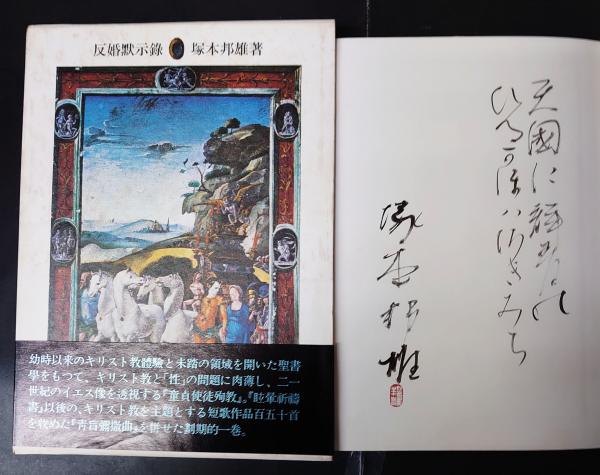 反婚默示錄 塚本邦雄著
幼時以来のキリスト教體驗と未踏の領域を開いた聖書
學をもつて、キリスト教と「性」の問題に肉薄し、二一
世紀のイエス像を透視する「童貞使徒殉教」。『眩暈祈禱
書』以後の、キリスト教を主題とする短歌作品百五十首
を收めた『靑盲彌撒曲』を併せた劃期的一卷。
天國に
塚本邦雄